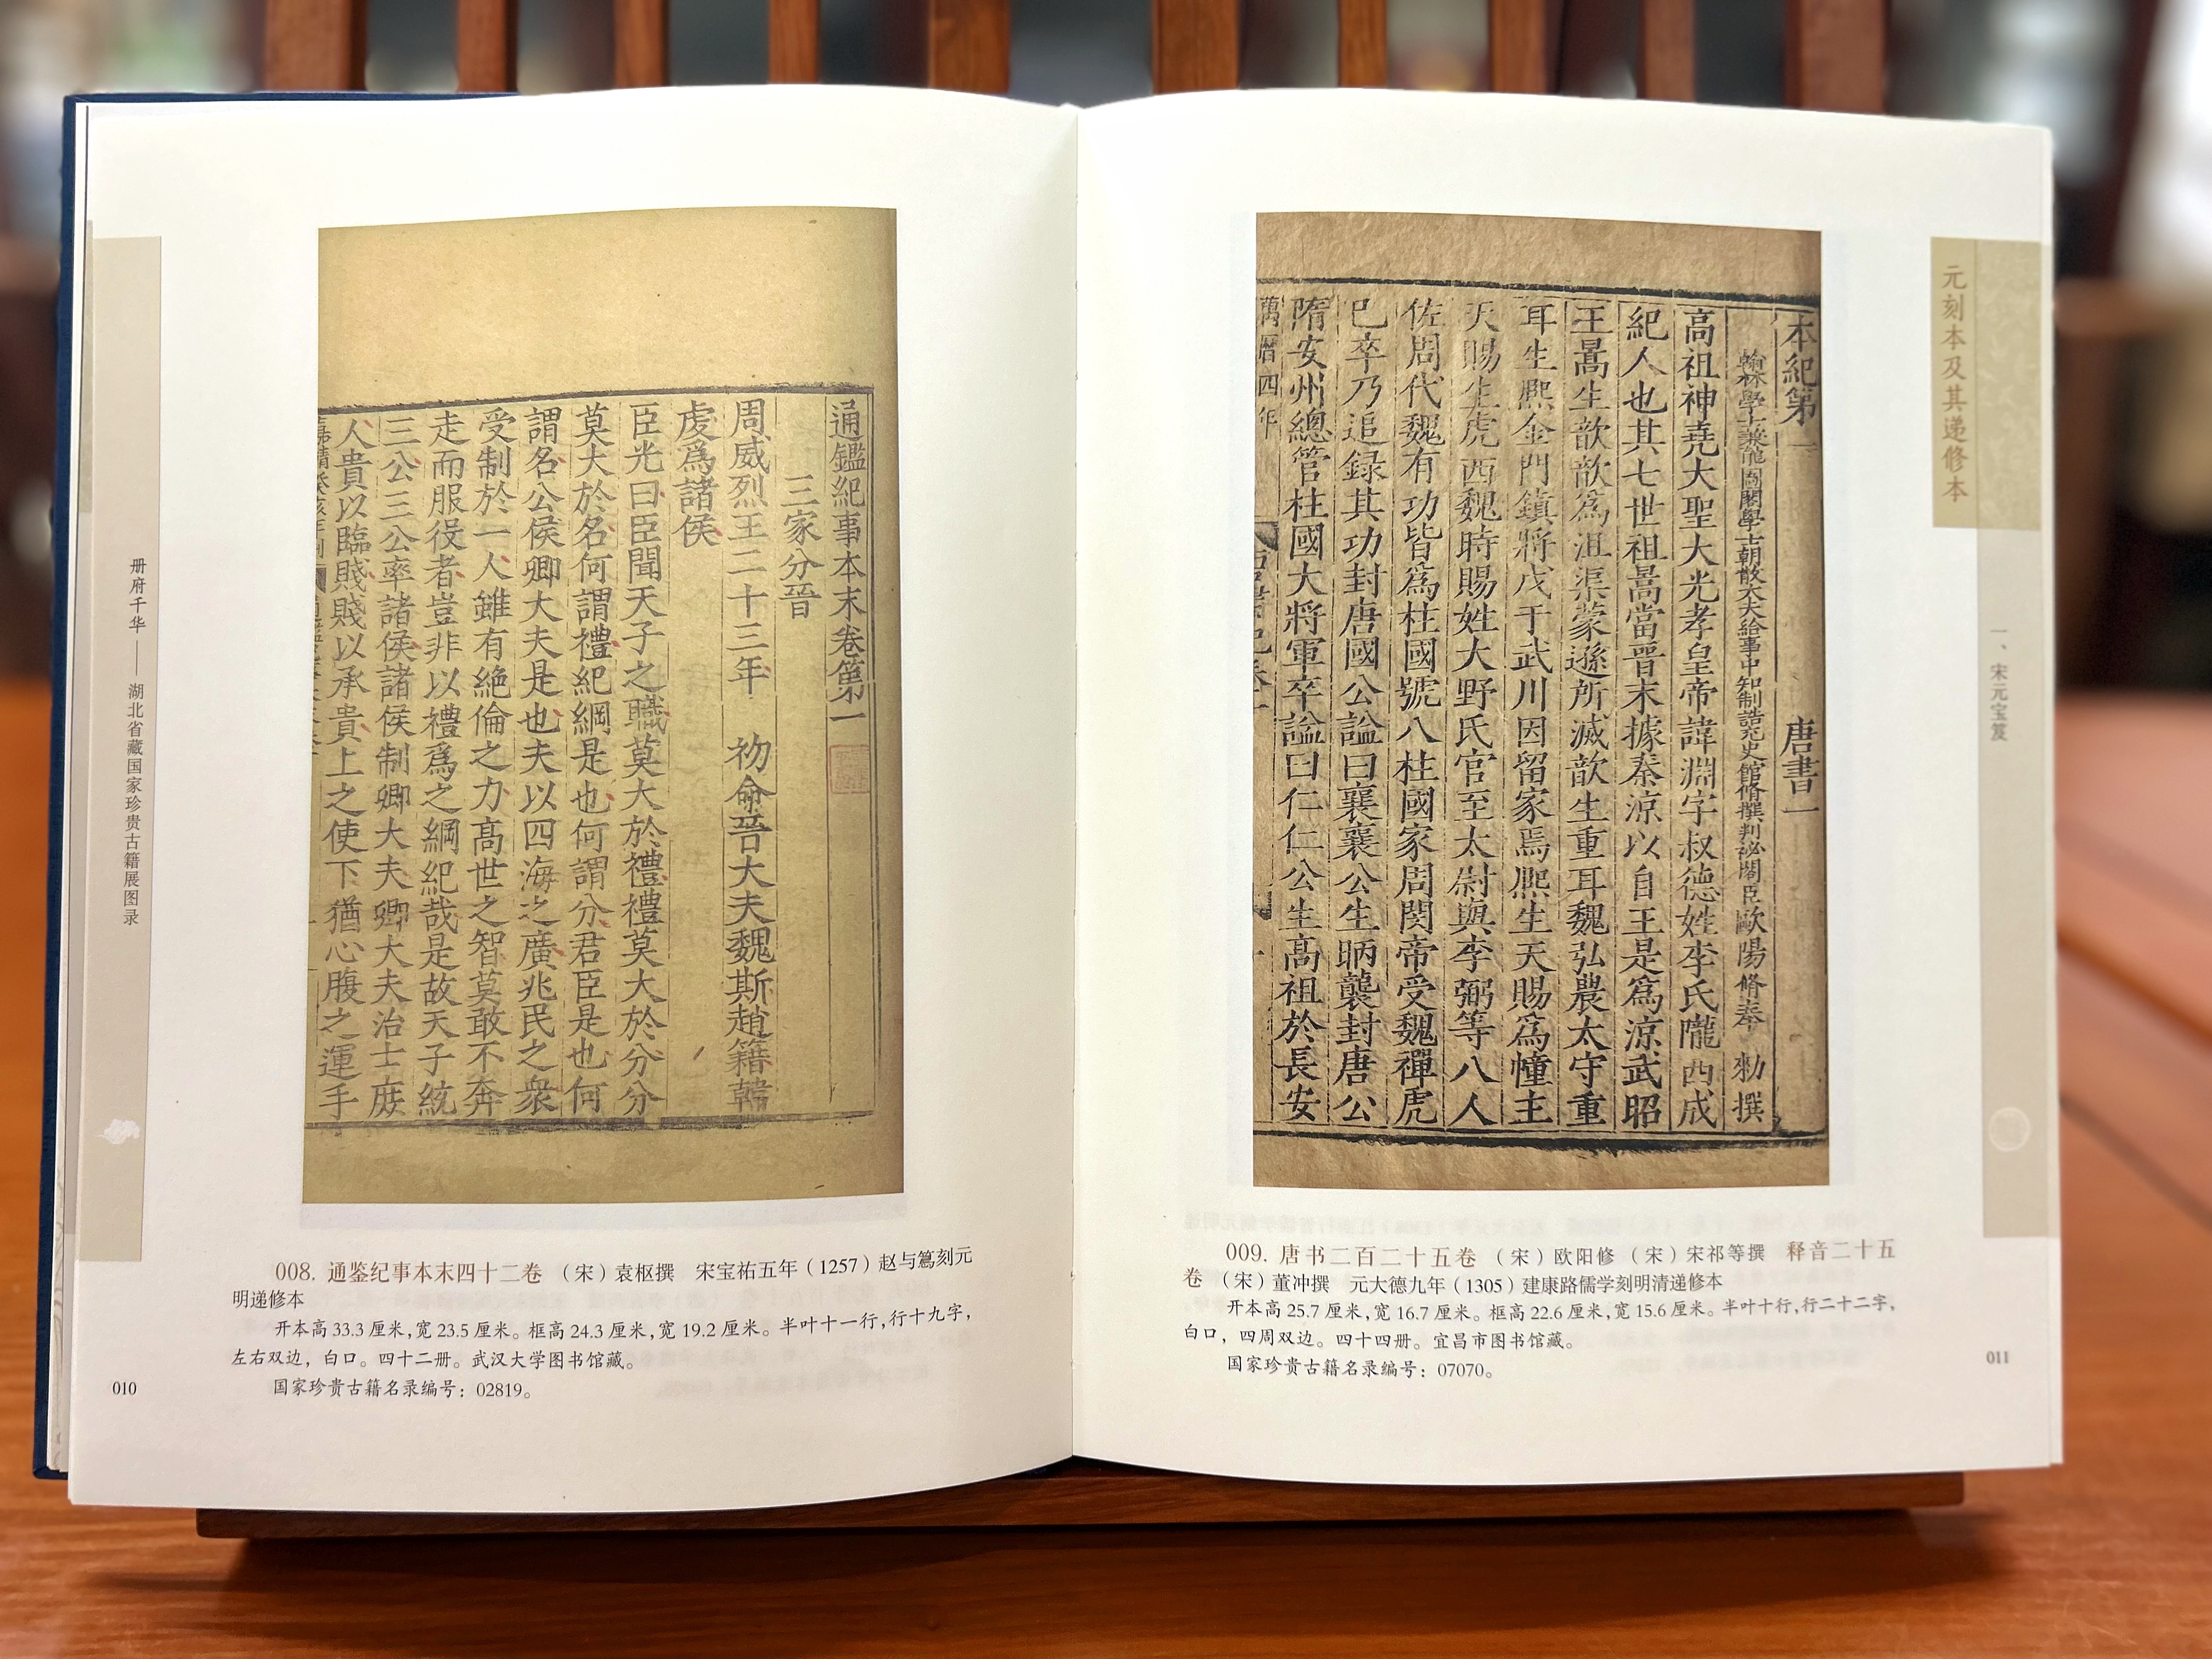 册府千华——湖北省藏国家珍贵古籍展图录
通鑑紀事本末卷第一
三家分晉
周威烈王二十三年 初命晉大夫魏斯趙籍韓
虔爲諸侯
臣光曰臣聞天子之職莫大於禮禮莫大於分分
莫大於名何謂禮紀綱是也何謂分君臣是也何
謂名公侯卿大夫是也夫以四海之廣兆民之衆
受制於一人雖有絶倫之力高世之智莫敢不奔
走而服役者豈非以禮爲之綱紀哉是故天子統
三公三公率諸侯諸侯制卿大夫卿大夫治士庶
人貴以臨賤賤以承貴上之使下猶心腹之運手
008. 通鉴纪事本末四十二卷 （宋）袁枢撰 宋宝祐五年（1257）赵与𥲅刻元
明递修本
开本高 33.3 厘米，宽 23.5 厘米。框高 24.3 厘米，宽 19.2 厘米。半叶十一行，行十九字，
左右双边，白口。四十二册。武汉大学图书馆藏。
国家珍贵古籍名录编号：02819。
010
元刻本及其递修本
一、宋元宝笈
本紀第一 唐書一
翰林學士兼龍圖閣學士朝散大夫給事中知制誥充史館脩撰判祕閣臣歐陽脩奉 勑撰
高祖神堯大聖大光孝皇帝諱淵字叔德姓李氏隴西成
紀人也其七世祖暠當晉末據秦涼以自王是爲涼武昭
王暠生歆歆爲沮渠蒙遜所滅歆生重耳魏弘農太守重
耳生熙金門鎮將戍于武川因留家焉熙生天賜爲幢主
天賜生虎西魏時賜姓大野氏官至太尉與李弼等八人
佐周代魏有功皆爲柱國號八柱國家周閔帝受魏禪虎
已卒乃追録其功封唐國公諡曰襄襄公生昞襲封唐公
隋安州總管柱國大將軍卒諡曰仁仁公生高祖於長安
萬曆四年
009. 唐书二百二十五卷 （宋）欧阳修 （宋）宋祁等撰 释音二十五
卷 （宋）董冲撰 元大德九年（1305）建康路儒学刻明清递修本
开本高 25.7 厘米，宽 16.7 厘米。框高 22.6 厘米，宽 15.6 厘米。半叶十行，行二十二字，
白口，四周双边。四十四册。宜昌市图书馆藏。
国家珍贵古籍名录编号：07070。
011